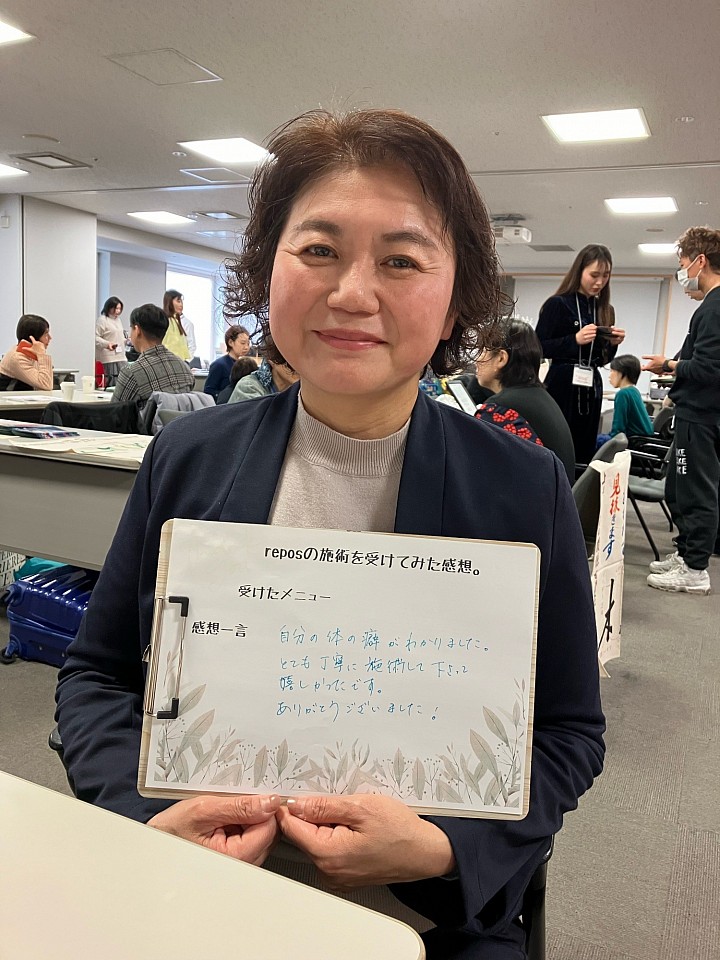 reposの施術を受けてみた感想。
受けたメニュー
感想一言
自分の体の癖がわかりました。
とても丁寧に施術して下さって
嬉しかったです。
ありがとうございました!
見抜きます
本